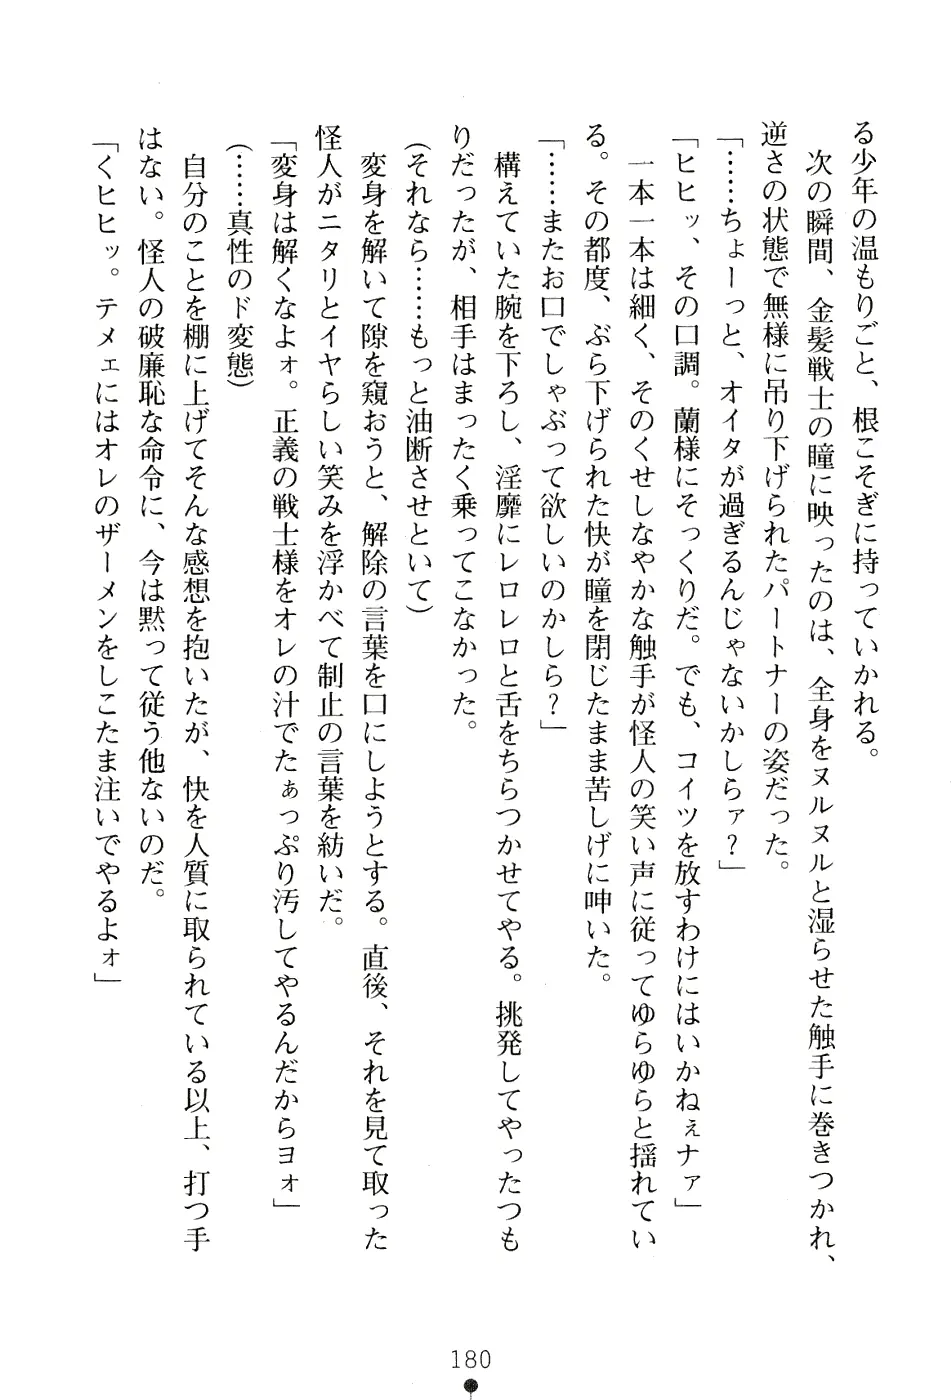 る少年の温もりごと、根こそぎに持っていかれる。
　次の瞬間、金髪戦士の瞳に映ったのは、全身をヌルヌルと湿らせた触手に巻きつかれ、
逆さの状態で無様に吊り下げられたパートナーの姿だった。
「……ちょーっと、オイタが過ぎるんじゃないかしらァ？」
「ヒヒッ、その口調。蘭様にそっくりだ。でも、コイツを放すわけにはいかねぇナァ」
　一本一本は細く、そのくせしなやかな触手が怪人の笑い声に従ってゆらゆらと揺れてい
る。その都度、ぶら下げられた快が瞳を閉じたまま苦しげに呻いた。
「……またお口でしゃぶって欲しいのかしら？」
　構えていた腕を下ろし、淫靡にレロレロと舌をちらつかせてやる。挑発してやったつも
りだったが、相手はまったく乗ってこなかった。
（それなら……もっと油断させといて）
　変身を解いて隙を窺おうと、解除の言葉を口にしようとする。直後、それを見て取った
怪人がニタリとイヤらしい笑みを浮かべて制止の言葉を紡いだ。
「変身は解くなよォ。正義の戦士様をオレの汁でたぁっぷり汚してやるんだからヨォ」
（……真性のド変態）
　自分のことを棚に上げてそんな感想を抱いたが、快を人質に取られている以上、打つ手
はない。怪人の破廉恥な命令に、今は黙って従う他ないのだ。
「くヒヒッ。テメェにはオレのザーメンをしこたま注いでやるよォ」
180